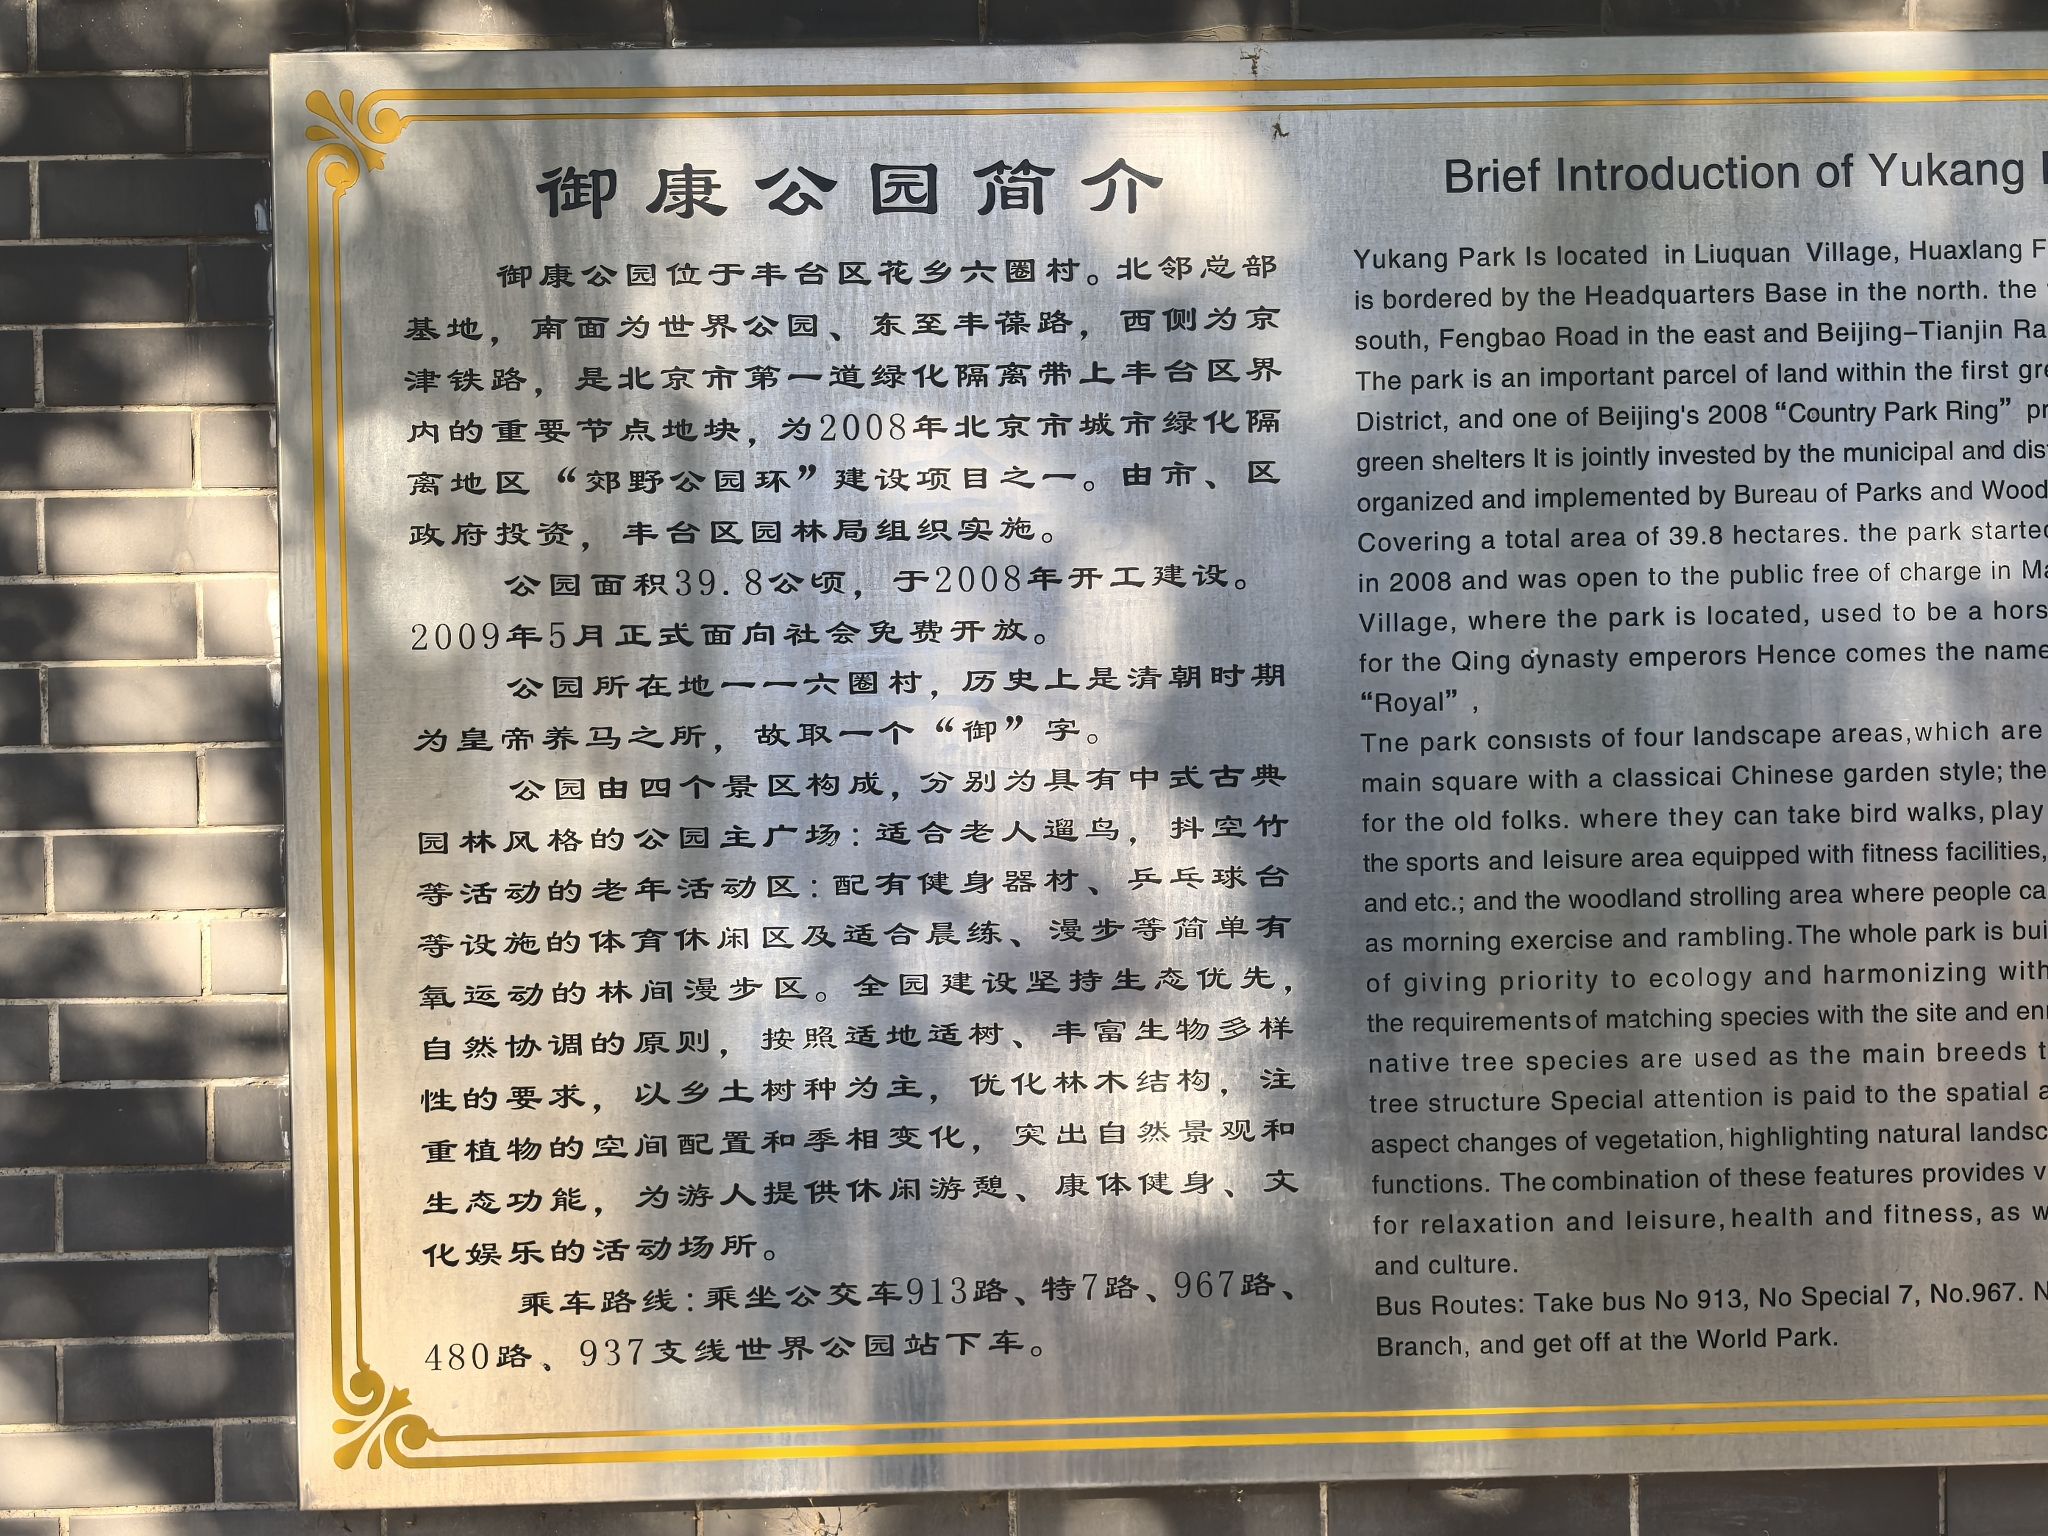 御康公园简介
御康公园位于丰台区花乡六圈村。北邻总部
基地，南面为世界公园、东至丰葆路，西侧为京
津铁路，是北京市第一道绿化隔离带上丰台区界
内的重要节点地块，为2008年北京市城市绿化隔
离地区“郊野公园环”建设项目之一。由市、区
政府投资，丰台区园林局组织实施。
公园面积39.8公顷，于2008年开工建设。
2009年5月正式面向社会免费开放。
公园所在地一一六圈村，历史上是清朝时期
为皇帝养马之所，故取一个“御”字。
公园由四个景区构成，分别为具有中式古典
园林风格的公园主广场：适合老人遛鸟，抖空竹
等活动的老年活动区：配有健身器材、乒乓球台
等设施的体育休闲区及适合晨练、漫步等简单有
氧运动的林间漫步区。全园建设坚持生态优先，
自然协调的原则，按照适地适树、丰富生物多样
性的要求，以乡土树种为主，优化林木结构，注
重植物的空间配置和季相变化，突出自然景观和
生态功能，为游人提供休闲游憩、康体健身、文
化娱乐的活动场所。
乘车路线：乘坐公交车913路、特7路、967路、
480路、937支线世界公园站下车。
Brief Introduction of Yukang
Yukang Park Is located in Liuquan Village, Huaxlang
is bordered by the Headquarters Base in the north. the
south, Fengbao Road in the east and Beijing-Tianjin
The park is an important parcel of land within the first
District, and one of Beijing's 2008 “Country Park Ring”
green shelters It is jointly invested by the municipal and
organized and implemented by Bureau of Parks and
Covering a total area of 39.8 hectares. the park started
in 2008 and was open to the public free of charge in
Village, where the park is located, used to be a
for the Qing dynasty emperors Hence comes the name
“Royal” ,
Tne park consists of four landscape areas,which are
main square with a classicai Chinese garden style; the
for the old folks. where they can take bird walks, play
the sports and leisure area equipped with fitness facilities,
and etc.; and the woodland strolling area where people
as morning exercise and rambling.The whole park is
of giving priority to ecology and harmonizing with
the requirements of matching species with the site and
native tree species are used as the main breeds
tree structure Special attention is paid to the spatial
aspect changes of vegetation, highlighting natural
functions. The combination of these features provides
for relaxation and leisure, health and fitness, as
and culture.
Bus Routes: Take bus No 913, No Special 7, No.967.
Branch, and get off at the World Park.